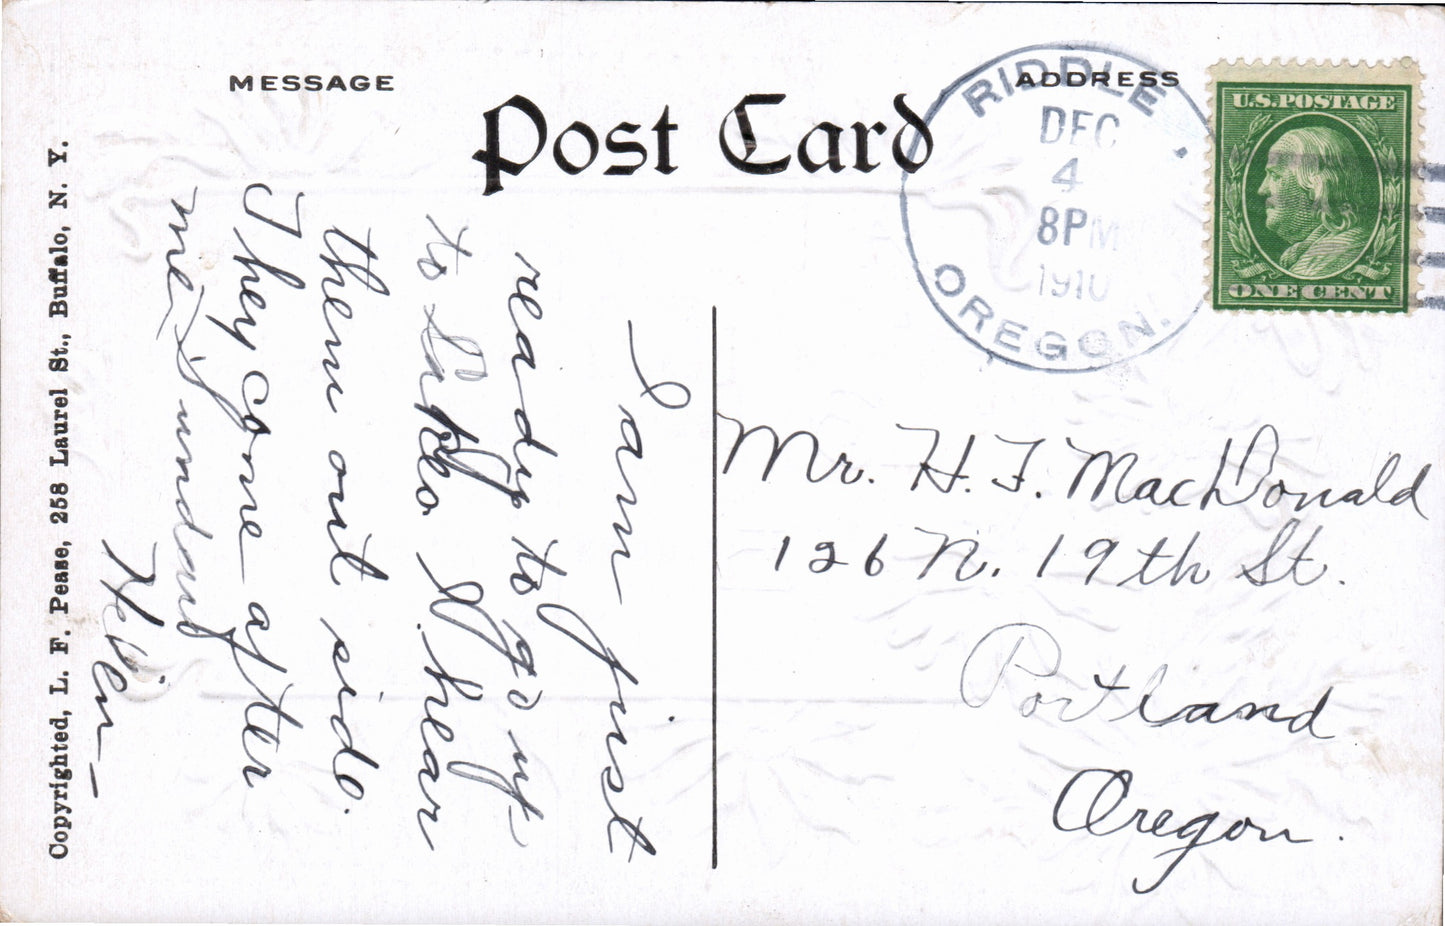 MESSAGE
Post Card
ADDRESS
RIDDLE
DEC
4
8PM
1910
OREGON.
U.S.POSTAGE
ONE CENT
I am just
ready to go up
to N. hear
them out side.
They come after
me
Helen
Mr. H. F. MacDonald
126 N. 19th St.
Portland
Oregon.
Copyrighted, L. F. Pease, 258 Laurel St., Buffalo, N. Y.